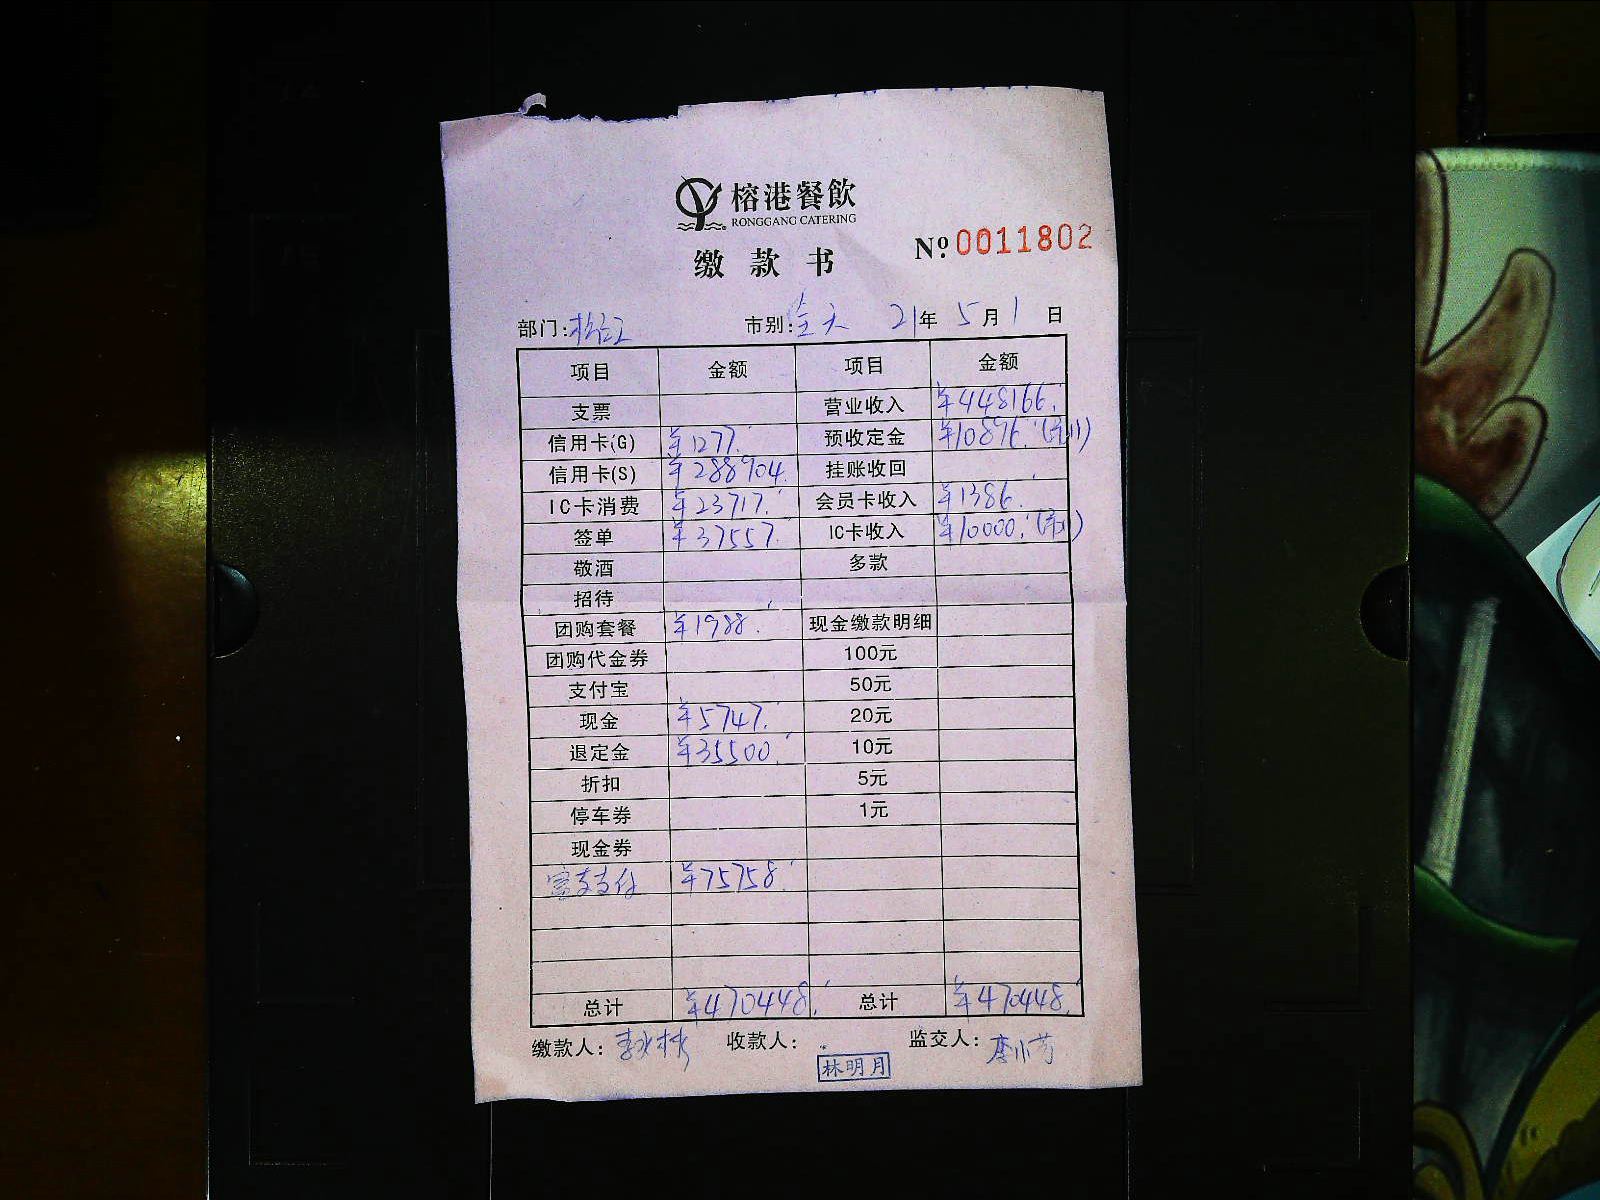 榕港餐飲
RONGGANG CATERING
缴款书 №:0011802
部门:松江 市别:全天 21年 5月 1日
项目 金额 项目 金额
支票 营业收入 ¥448166.
信用卡(G) ¥1277. 预收定金 ¥10896.
信用卡(S) ¥288904. 挂账收回
IC卡消费 ¥23717. 会员卡收入 ¥1386.
签单 ¥37557. IC卡收入 ¥10000.
敬酒 多款
招待
团购套餐 ¥1988. 现金缴款明细
团购代金券 100元
支付宝 50元
现金 ¥5747. 20元
退定金 ¥35500. 10元
折扣 5元
停车券 1元
现金券
支付 ¥75758.
总计 ¥470448. 总计 ¥470448.
缴款人: 收款人: 林明月 监交人: